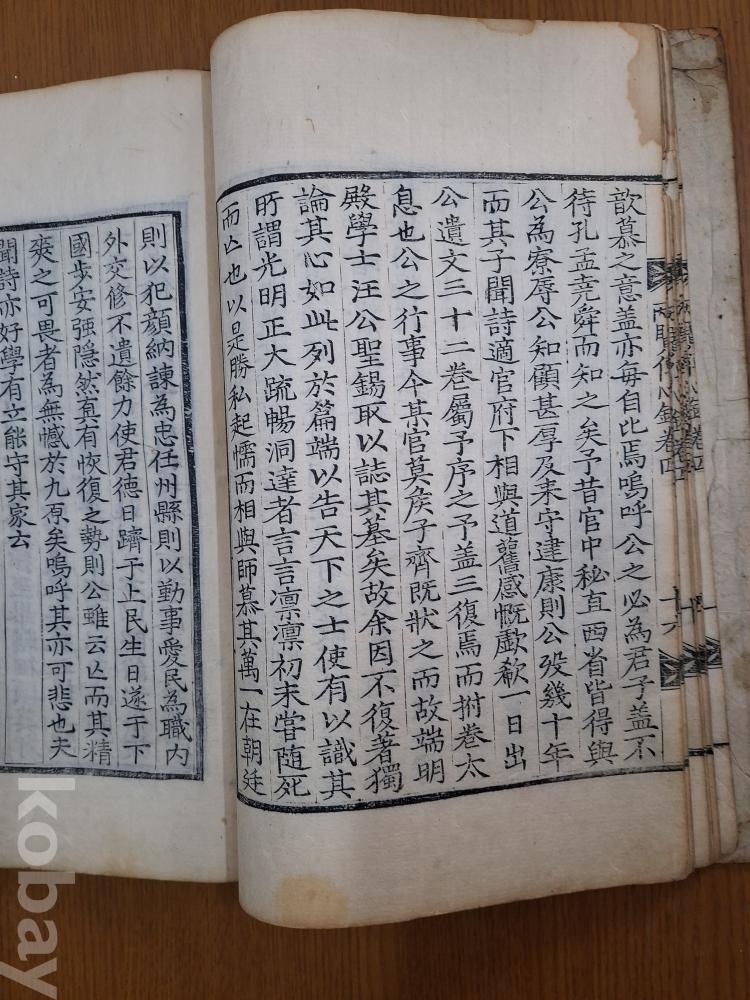 歆慕之意盖亦每自比焉嗚呼公之必為君子盖不
待孔孟尭舜而知之矣予昔官中秘直西省皆得與
公為寮辱公知顧甚厚及来守建康則公歿幾十年
而其子聞詩適官府下相與道舊感慨歔欷一日出
公遺文三十二卷屬予序之予盖三復焉而拊卷太
息也公之行事今某官莫矦子齊既狀之而故端明
殿學士汪公聖錫取以誌其墓矣故余因不復著獨
論其心如此列於篇端以告天下之士使有以識其
所謂光明正大疏暢洞達者言言凛凛初未甞随死
而亾也以是勝私起懦而相與師慕其萬一在朝廷
則以犯顔納諫為忠任州縣則以勤事愛民為職内
外交修不遺餘力使君德日躋于上民生日遂于下
國步安强隠然真有恢復之勢則公雖云亾而其精
爽之可畏者為無憾於九原矣嗚呼其亦可悲也夫
聞詩亦好學有立能守其家云
卷四
十六
kobay